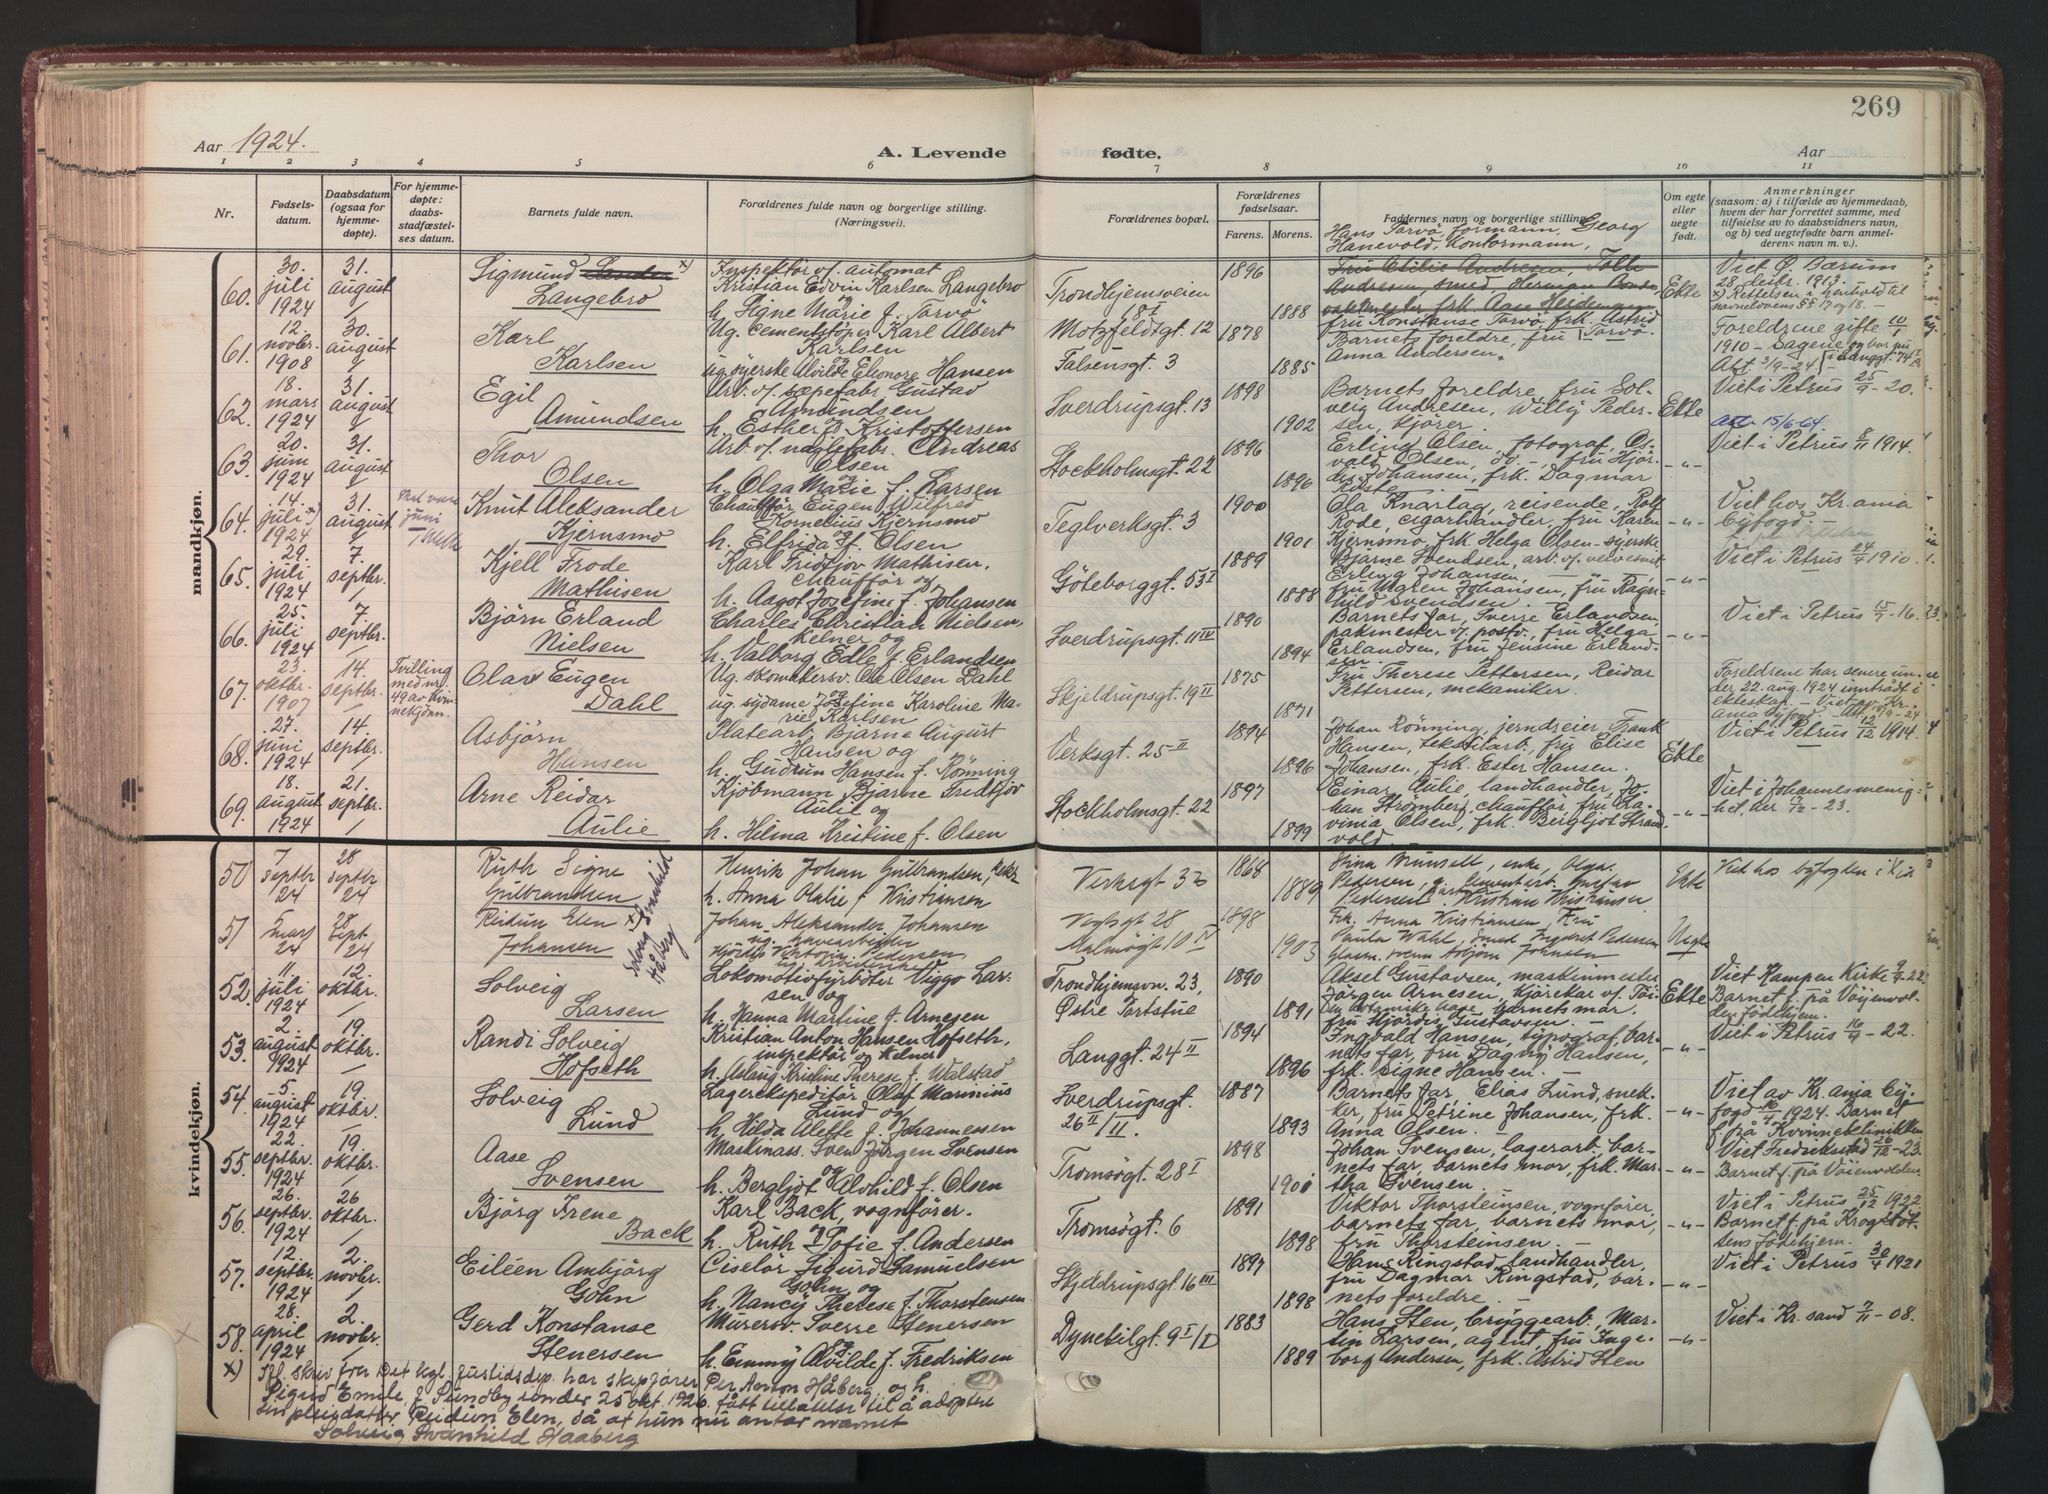 269
Aar 1924.
A. Levende fødte.
Aar
1 2 3 4 5 6 7 8 9 10 11
Nr.
Fødselsdatum.
Daabsdatum (ogsaa for hjemmedøpte).
For hjemmedøpte: daabsstadfæstelses datum.
Barnets fulde navn.
Forældrenes fulde navn og borgerlige stilling. (Næringsvei).
Forældrenes bopæl.
Forældrenes fødselsaar.
Farens. Morens.
Faddernes navn og borgerlige stilling.
Om egte eller uegte født.
Anmerkninger
(saasom: a) i tilfælde av hjemmedaab, hvem der har forrettet samme, med tilføielse av to daabsvidners navn, og b) ved uegtefødte barn anmelderens navn m. v.).
mandkjøn.
60. 30. juli 1924 31. august
Sigmund Langebro
Inspektør v. automat
Kristian Edvin Karlsen Langebro
og
h. Signe Marie f. Tarvö
Trondhjemsveien 18 I
1896 1888
Hans Tarvö, formann, Georg
Hanevold, Kontormann,
fru Konstanse Tarvö, frk. Astrid Tarvö.
Ekte
Viet Ö. Bærum
28. desbr. 1913.
61. 12. novbr. 1908 30. august
Karl Karlsen
Ug. Cementstöper Karl Albert Karlsen
og
ug. syerske Alvilde Eleonore Hansen
Motzfeldtgt. 12
Falsensgt. 3
1878 1885
Barnets foreldre, fru
Anna Andersen.
Foreldrene gifte 10/1
1910 – Sagene og bor nu
i Langgt. 74
Att. 3/9-24
62. 18. mars 1924 31. august
Egil Amundsen
Arb. v. sæpefabr. Gustav Amundsen
og
h. Esther f. Kristoffersen
Sverdrupsgt. 13
1898 1902
Barnets foreldre, fru Solveig Andresen, Willy Pedersen, kjörer.
Ekte
Viet i Petrus 25/9 - 20.
att 15/6-64.
63. 20. juni 1924 31. august
Thor Olsen
Arb. v. naglefabr. Andreas Olsen
og
h. Olga Marie f. Larsen
Stockholmsgt. 22
1896 1896
Erling Olsen, fotograf, Osvald Olsen, do –, fru Hjördis Johansen, frk. Dagmar
-„-
Viet i Petrus 8/11 1914.
64. 14. juli x) 1924 31. august
juni
Knut Aleksander Kjernsmo
Chaufför Eugen Wilfred
Kornelius Kjernsmo
og
h. Elfrida f. Olsen
Teglverksgt. 3
1900 1901
Ola Knarlag, reisende, Rolf
Rode, cigarhandler, fru Karen
Kjernsmo, frk. Helga Olsen - syerske
-„-
Viet hos Kr.ania
byfogd. –
65. 29. juli 1924 7. septbr.
Kjell Frode Mathisen
Karl Fridtjov Mathisen,
chauffør og
h. Aagot Josefine f. Johansen
Göteborggt. 53 I
1889 1888
Bjarne Svendsen, arb.
Erling Johansen, –
fru Maren Johansen, fru Ragnhild Svendsen. –
-„-
Viet i Petrus 24/4 1910.
66. 25. juli 1924 7 septbr.
Björn Erland Nielsen
Charles Christian Nielsen,
kelner og
h. Valborg Edle f. Erlandsen
Sverdrupsgt. 11 III
1890 1894
Barnets far, Sverre Erlandsen,
pakmester v. postv., fru Helga
Erlandsen, fru Jensine Erlandsen.
-„-
Viet i Petrus 15/9 - 16.
67. 23. oktbr. 1907 14. septbr.
Tvilling med nr. 49 av Kvinnekjönn.
Olav Eugen Dahl
Ug. skomakersv. Ole Olsen Dahl
og
ug. sydame Josefine Karoline Marie Karlsen
Skjeldrupsgt. 19 II
1875 1871
Fru Therese Pettersen, Reidar
Pettersen, mekaniker.
Foreldrene har senere under 22. aug. 1924 inntrådt i
ekteskap. – Viet av Kr.ania byfogd. – Att. 19/9-24
68. 27. juni 1924 14. septbr.
Asbjörn Hansen
Platearb. Bjarne August
Hansen og
h. Gudrun Hansen f. Rönning
Verksgt. 25 II
1894 1896
Johan Rönning, jerndreier, Frank
Hansen, tekstilarb., fru Elise
Johansen, frk. Ester Hansen.
Ekte
Viet i Petrus 12/12 1914.
69. 18. august 1924 21. septbr.
Arne Reidar Aulie
Kjöbmann Bjarne Fredtjov
Aulie og
h. Hilma Kristine f. Olsen
Stockholmsgt. 22
1897 1899
Einar Aulie, landhandler, Johan Strömberg, chauffør, fru Lavinia Olsen, frk. Bergljot Strandvold.
-„-
Viet i Johannes menighet, her - 23.
kvindekjøn.
50. 7 septbr 24 28 septbr 24
Ruth Signe Gulbrandsen
Henrik Johan Gulbrandsen,
h. Anna Olalie f Kristiansen
Verksgt 3b
1868 1889
Stina Brunsell, enke, Olga
Pedersen, Gustav
Pedersen, Kristian Kristiansen
Ekte
Viet hos byfogden i Kr.ia
51 5 mars 24 28 sept 24
Reidun Elen x) Johansen
Solveig Svanhild Håberg
Johan Aleksander Johansen
Hjördis Viktoria Pedersen
Vogtsgt 28
Malmögt 10 IV
1898 1903
Frk. Anna Kristiansen, Fru
Paula Wahl, Smed Ingvart Pedersen
Asbjörn Johnsen
Uegte
52. 11. juli 1924 12. oktbr.
Solveig Larsen
Lokomotivfyrböter Viggo Larsen og
h. Hanna Martine f. Arnesen
Trondhjemsvn. 23,
Östre Tortstue
1890 1891
Aksel Gustavsen, maskinmester
Jörgen Arnesen, kjörekar v. Töien botaniske have, barnets mor,
fru Hjördis Gustavsen. –
Ekte
Viet Kampen Kirke 9/7 22.
Barnet f. på Vöyenvolden födehjem.
53. 2. august 1924 19. oktbr.
Randi Solveig Hofseth
Kristian Anton Hansen Hofseth,
inspektör og kelner
h. Aslaug Kristine Therese f. Walstad
Langgt. 24 II
1894 1896
Ingvald Hansen, typograf, barnets far, fru Dagny Hansen,
frk. Signe Hansen. –
-„-
Viet i Petrus 16/9 - 22.
54. 5 august 1924 19. oktbr.
Solveig Lund
Lagerekspeditör Olaf Marinius
Lund og
h. Hilda Alette f. Johannessen
Sverdrupsgt.
26 II/II.
1887 1893
Barnets far, Elias Lund, snekker, fru Petrine Johansen, frk.
Anna Olsen. –
-„-
Viet av Kr.ania Byfogd 16/4 1924. Barnet
f. på Kvinneklinikken
55. 22. septbr. 1924 19. oktbr.
Aase Svensen
Maskinass. Sven Jörgen Svensen
og
h. Bergljot Alvhild f. Olsen
Tromsögt. 28 I
1898 1901
Johan Svensen, lagerarb. barnets far, barnets mor, frk. Martha Svensen.
-„-
Viet Fredrikstad 26/12 - 23.
Barnet f. på Vöienvolden
56. 26. septbr. 1924 26 oktbr.
Björg Irene Back
Karl Back, vognfører.
og
h. Ruth Sofie f. Andersen
Tromsögt. 6
1891 1898
Viktor Thorsteinsen, vognförer,
barnets far, barnets mor,
fru Thorsteinsen. –
-„-
Viet i Petrus 25/12 1922
Barnet f. på Krogstötsens födehjem.
57. 12. septbr. 1924 2. novbr.
Eiléen Ambjörg Gohn
Ciselör Sigurd Samuelsen
Gohn og
h. Nancy Therese f. Thorstensen
Skjeldrupsgt. 16 III
1897 1898
Hans Ringstad, landhandler,
fru Dagmar Ringstad, barnets foreldre. –
-„-
Viet i Petrus 30/4 1921
58. 28. april 1924 2. novbr.
Gerd Konstanse Stenersen
Murersv. Sverre Stenersen
og
h. Emmy Alvilde f. Fredriksen
Dynekilgt. 9 I/I
1883 1889
Hans Sten, bryggearb., Martin Larsen, agent, fru Ingeborg Andersen, frk. Astrid Sten
-„-
Viet i Kr.sand 7/11 - 08.
x) Ifl. skriv fra Det kgl. justisdep. har skipsfører Per Anton Håberg og h.
Signe Emilie f. Sundby under 25 okt. 1926 fått tillatelse til å adoptere
sin pleiedatter Reidun Elen, så at hun nu antar navnet
Solveig Svanhild Haaberg